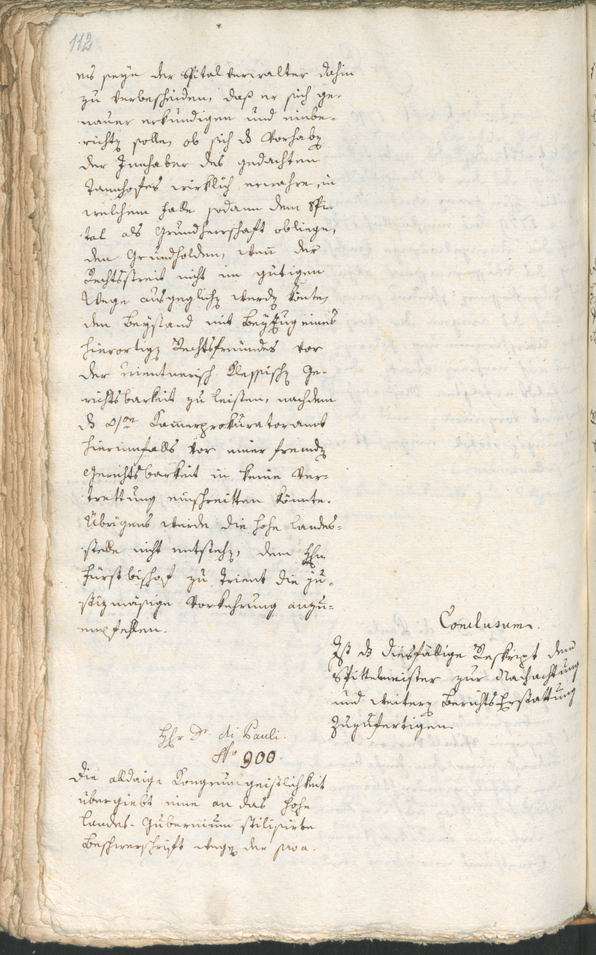 112
es seye der Spitalverwalter dahin
zu verbescheiden, daß er sich ge-
nauer erkundigen und einbe-
richten solle, ob sich das Vorhaben
der Innhaber des gedachten
Tannhofes wirklich erwahre, in
welchem Falle sodann dem Spi-
tal als Grundherrschaft obliege,
den Grundholden, wenn der
Rechtsstreit nicht im gütigen
Wege ausgeglichen werden könte,
den Beystand mit Beyzug eines
hierortigen Rechtsfreundes vor
der trientnerisch Ge-
richtsbarkeit zu leisten, nachdem
das Kammerprokuratoramt
hierinnfalls vor einer fremden
Gerichtsbarkeit in keine Ver-
trettung einschreitten könnte.
Übrigens werde die hohe Landes-
stelle nicht entstehen, dem Hrn
Fürstbischof zu Trient die ju-
stizmäsige Vorkehrung anzu-
empfehlen.
Conclusum.
Ist das diesfällige Reskript dem
Spittelmeister zur Nachachtung
und weitern Berichts Erstattung
zuzufertigen.
Hr Dr. di Pauli.
No 900
Die alldaige Kongrungeistlichkeit
übergiebt eine an das hohe
Landes-Gubernium stilisirte
Beschwerschrift wegen der